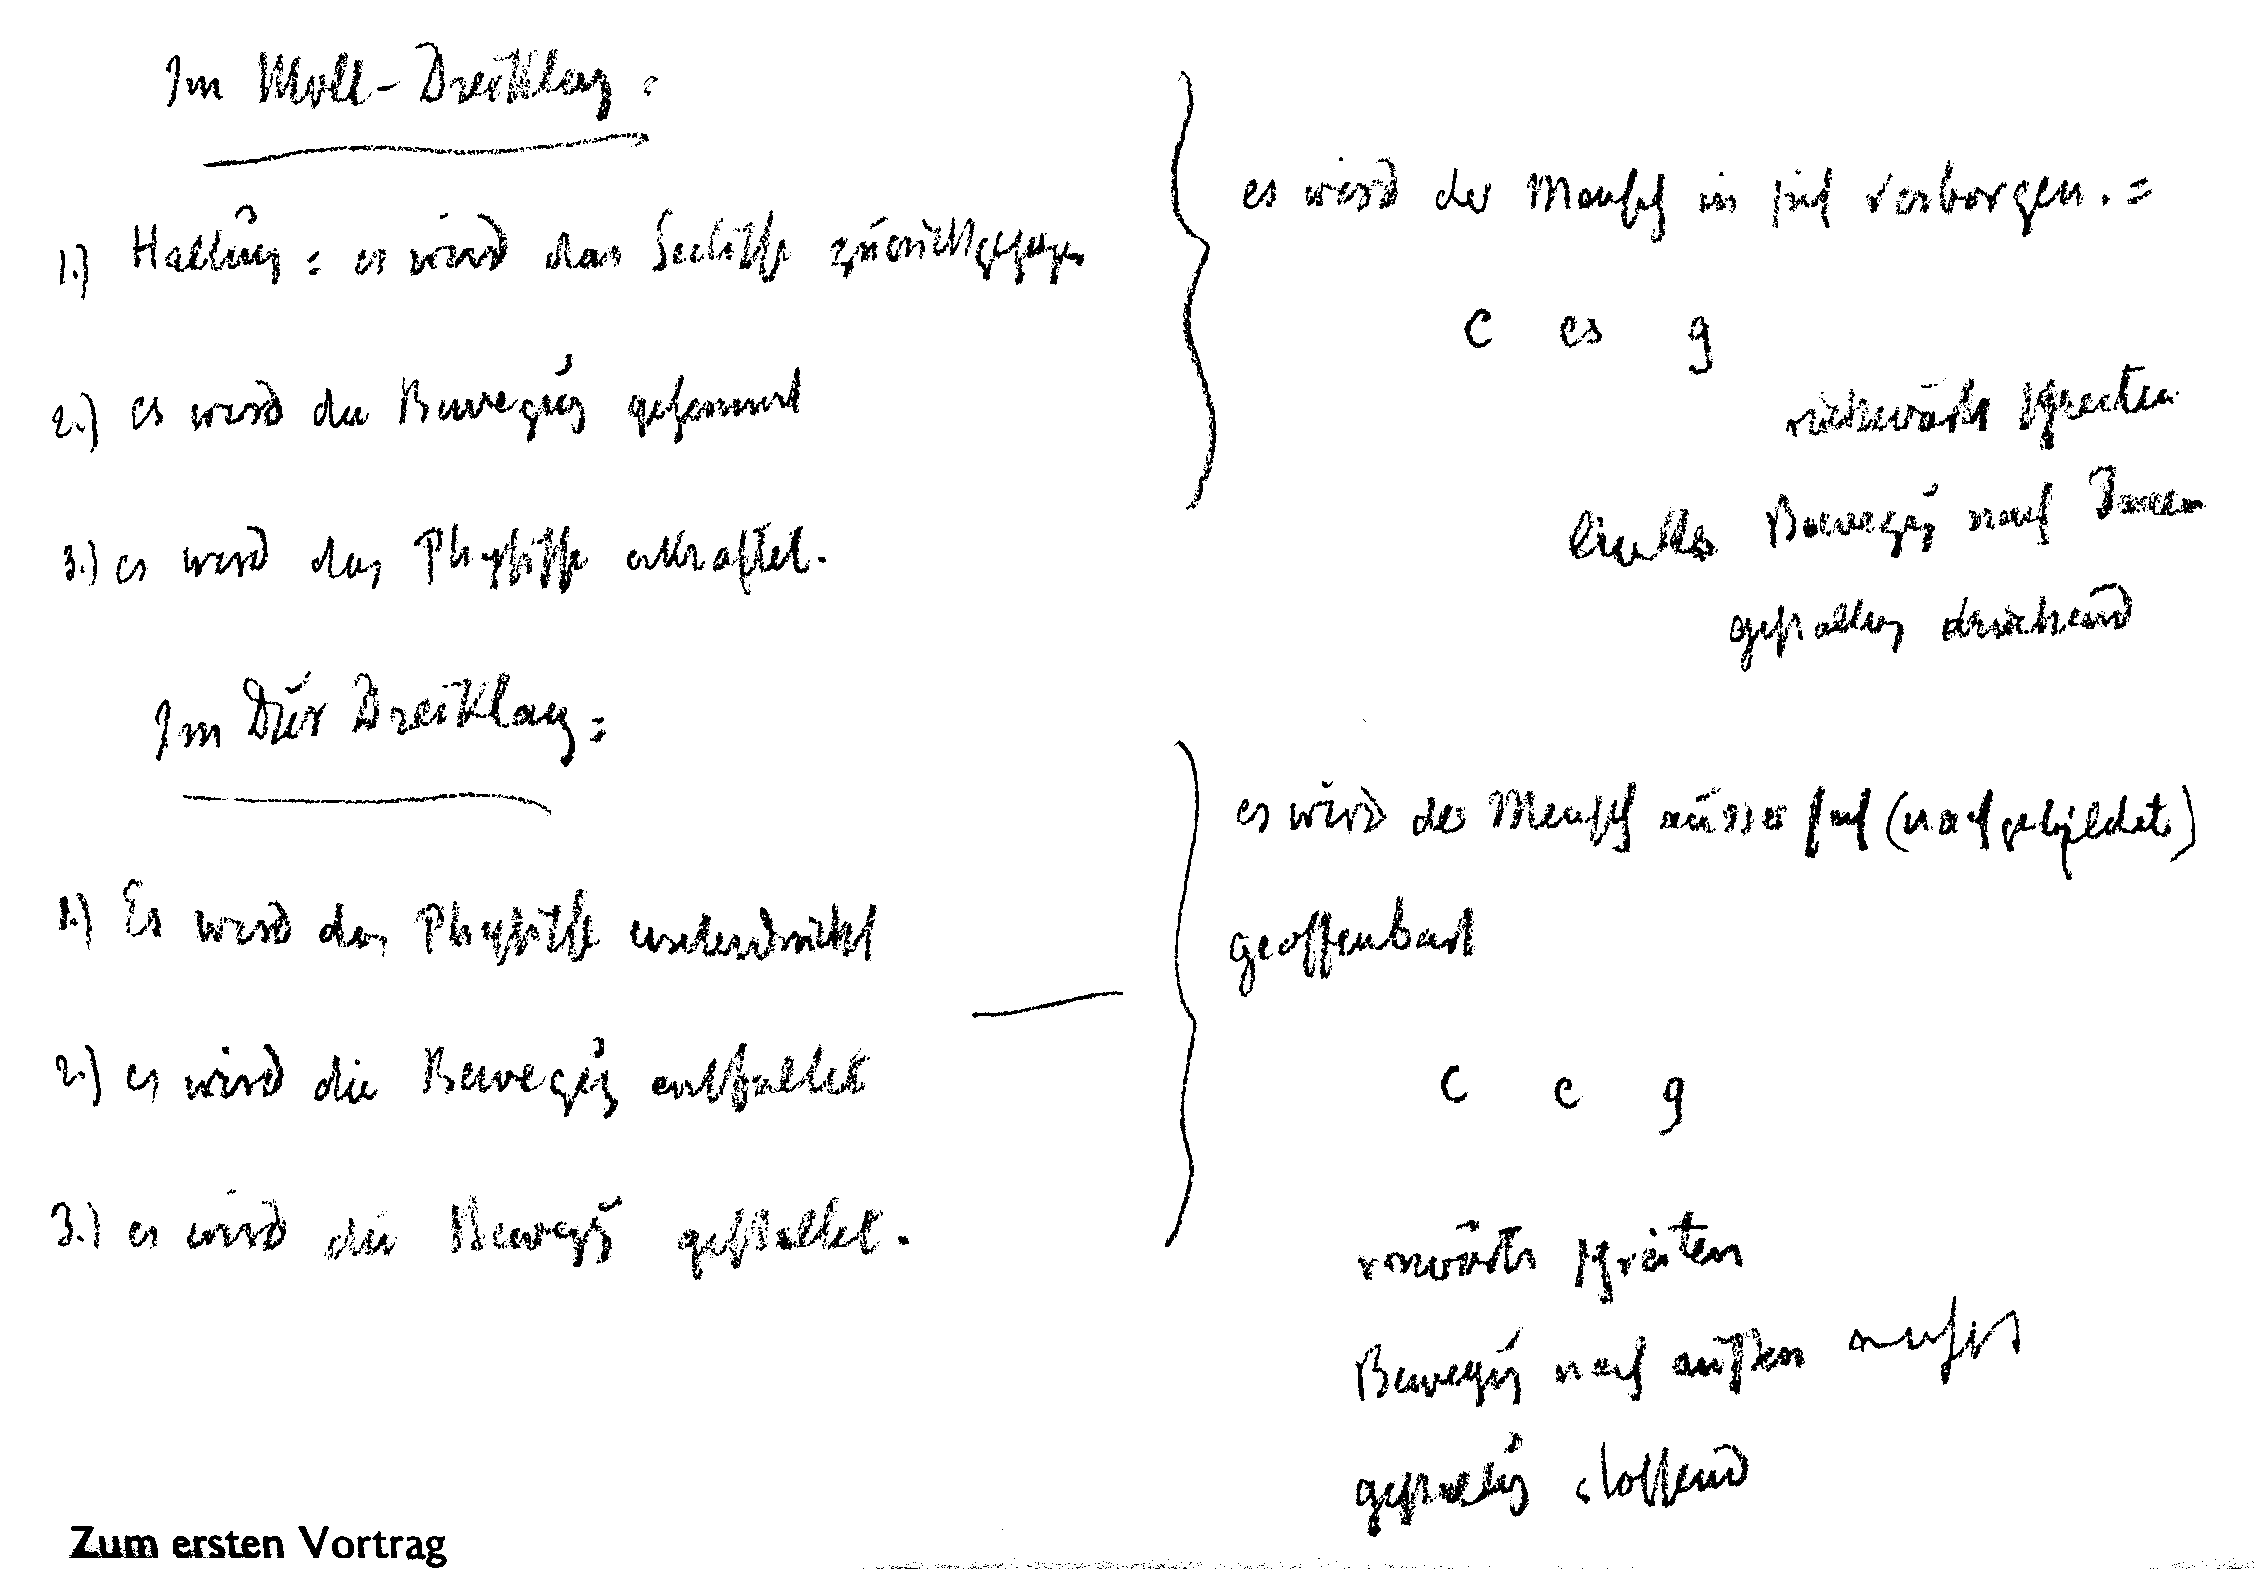 Im Moll-Dreiklang:
1.) Haltung: es wird das Seelische zurückgezogen
2.) es wird die Bewegung gehemmt
3.) es wird das Physische erkraftet.
es wird der Mensch in sich verborgen. =
c es g
rückwärts schreiten
links Bewegung nach Innen
gestaltung drückend
Im Dur Dreiklang =
1.) Es wird das Physische unterdrückt
2.) es wird die Bewegung entfaltet
3.) es wird die Bewegung gestaltet.
es wird der Mensch ausser sich (nachgebildet)
geoffenbart
c e g
vorwärts schreiten
Bewegung nach außen rechts
gestaltung stossend
Zum ersten Vortrag